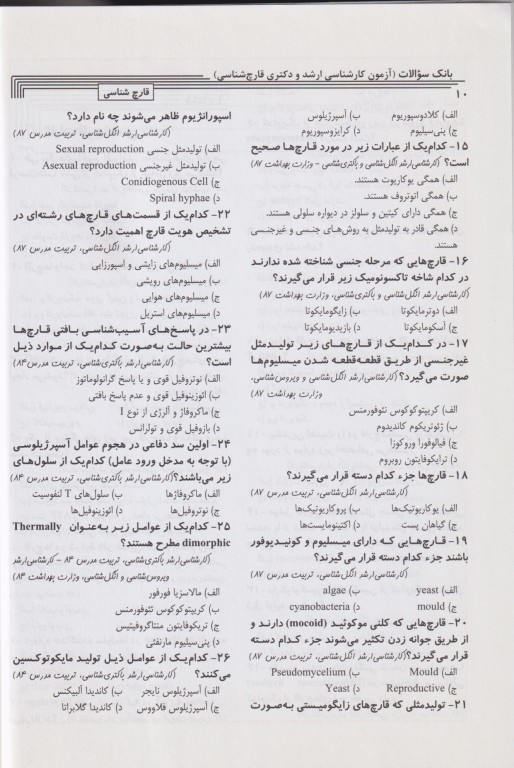 بانک سؤالات (آزمون کارشناسی ارشد و دکتری قارچ‌شناسی)
۱۰
قارچ شناسی
الف) کلادوسپوریوم ب) آسپرژیلوس
ج) پنی‌سیلیوم د) کرایزوسپوریوم
۱۵- کدام‌یک از عبارات زیر در مورد قارچ‌ها صحیح
است؟ (کارشناسی ارشد انگل‌شناسی و باکتری‌شناسی – وزارت بهداشت ۸۷)
الف) همگی یوکاریوت هستند.
ب) همگی اتوتروف هستند.
ج) همگی دارای کیتین و سلولز در دیواره سلولی هستند.
د) همگی قادر به تولیدمثل به روش‌های جنسی و غیرجنسی
هستند.
۱۶- قارچ‌هایی که مرحله جنسی شناخته شده ندارند
در کدام شاخه تاکسونومیک زیر قرار می‌گیرند؟
(کارشناسی ارشد انگل‌شناسی و باکتری‌شناسی، وزارت بهداشت ۸۷)
الف) دوترمایکوتا ب) زایگومایکوتا
ج) آسکومایکوتا د) بازیدیومایکوتا
۱۷- در کدام‌یک از قارچ‌های زیر تولیدمثل
غیرجنسی از طریق قطعه‌قطعه شدن میسلیوم‌ها
صورت می‌گیرد؟ (کارشناسی ارشد انگل‌شناسی و ویروس‌شناسی،
وزارت بهداشت ۸۷)
الف) کریپتوکوکوس نئوفورمنس
ب) ژئوتریکوم کاندیدوم
ج) فیالوفورا وروکوزا
د) ترایکوفایتون روبروم
۱۸- قارچ‌ها جزء کدام دسته قرار می‌گیرند؟
(کارشناسی ارشد انگل‌شناسی، تربیت مدرس ۸۷)
الف) یوکاریوتیک‌ها ب) پروکاریوتیک‌ها
ج) گیاهان پست د) اکتینومایست‌ها
۱۹- قارچ‌هایی که دارای میسلیوم و کونیدیوفور
باشند جزء کدام دسته قرار می‌گیرند؟
(کارشناسی ارشد انگل‌شناسی، تربیت مدرس ۸۷)
الف) yeast ب) algae
ج) mould د) cyanobacteria
۲۰- قارچ‌هایی که کلنی موکوئید (mocoid) دارند و
از طریق جوانه زدن تکثیر می‌شوند جزء کدام دسته
قرار می‌گیرند؟ (کارشناسی ارشد انگل‌شناسی، تربیت مدرس ۸۷)
الف) Mould ب) Pseudomycelium
ج) Reproductive د) Yeast
۲۱- تولیدمثلی که قارچ‌های زایگومیستی به‌صورت
اسپورانژیوم ظاهر می‌شوند چه نام دارد؟
(کارشناسی ارشد انگل‌شناسی، تربیت مدرس ۸۷)
الف) تولیدمثل جنسی Sexual reproduction
ب) تولیدمثل غیرجنسی Asexual reproduction
ج) Conidiogenous Cell
د) Spiral hyphae
۲۲- کدام‌یک از قسمت‌های قارچ‌های رشته‌ای در
تشخیص هویت قارچ اهمیت دارد؟
(کارشناسی ارشد انگل‌شناسی، تربیت مدرس ۸۷)
الف) میسلیوم‌های زایشی و اسپورزایی
ب) میسلیوم‌های رویشی
ج) میسلیوم‌های هوایی
د) میسلیوم‌های استریل
۲۳- در پاسخ‌های آسیب‌شناسی بافتی قارچ‌ها
بیشترین حالت به‌صورت کدام‌یک از موارد ذیل
است؟ (کارشناسی ارشد باکتری‌شناسی، تربیت مدرس ۸۴)
الف) نوتروفیل قوی و یا پاسخ گرانولوماتوز
ب) ائوزینوفیل قوی و عدم پاسخ بافتی
ج) ماکروفاژ و آلرژی از نوع I
د) بازوفیل قوی و تولرانس
۲۴- اولین سد دفاعی در هجوم عوامل آسپرژیلوسی
(با توجه به مدخل ورود عامل) کدام‌یک از سلول‌های
زیر می‌باشند؟ (کارشناسی ارشد باکتری‌شناسی، تربیت مدرس ۸۴)
الف) ماکروفاژها ب) سلول‌های T لنفوسیت
ج) نوتروفیل‌ها د) ائوزینوفیل‌ها
۲۵- کدام‌یک از عوامل زیر به‌عنوان Thermally
dimorphic مطرح هستند؟
(کارشناسی ارشد باکتری‌شناسی، تربیت مدرس ۸۴ – کارشناسی ارشد
ویروس‌شناسی و انگل‌شناسی، وزارت بهداشت ۸۴)
الف) مالاسزیا فورفور
ب) کریپتوکوکوس نئوفورمنس
ج) تریکوفایتون منتاگروفیتیس
د) پنی‌سیلیوم مارنفئی
۲۶- کدام‌یک از عوامل ذیل تولید مایکوتوکسین
می‌کنند؟ (کارشناسی ارشد باکتری‌شناسی، تربیت مدرس ۸۴)
الف) آسپرژیلوس نایجر ب) کاندیدا آلبیکنس
ج) آسپرژیلوس فلاووس د) کاندیدا گلابراتا